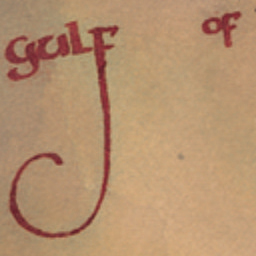 gulf of